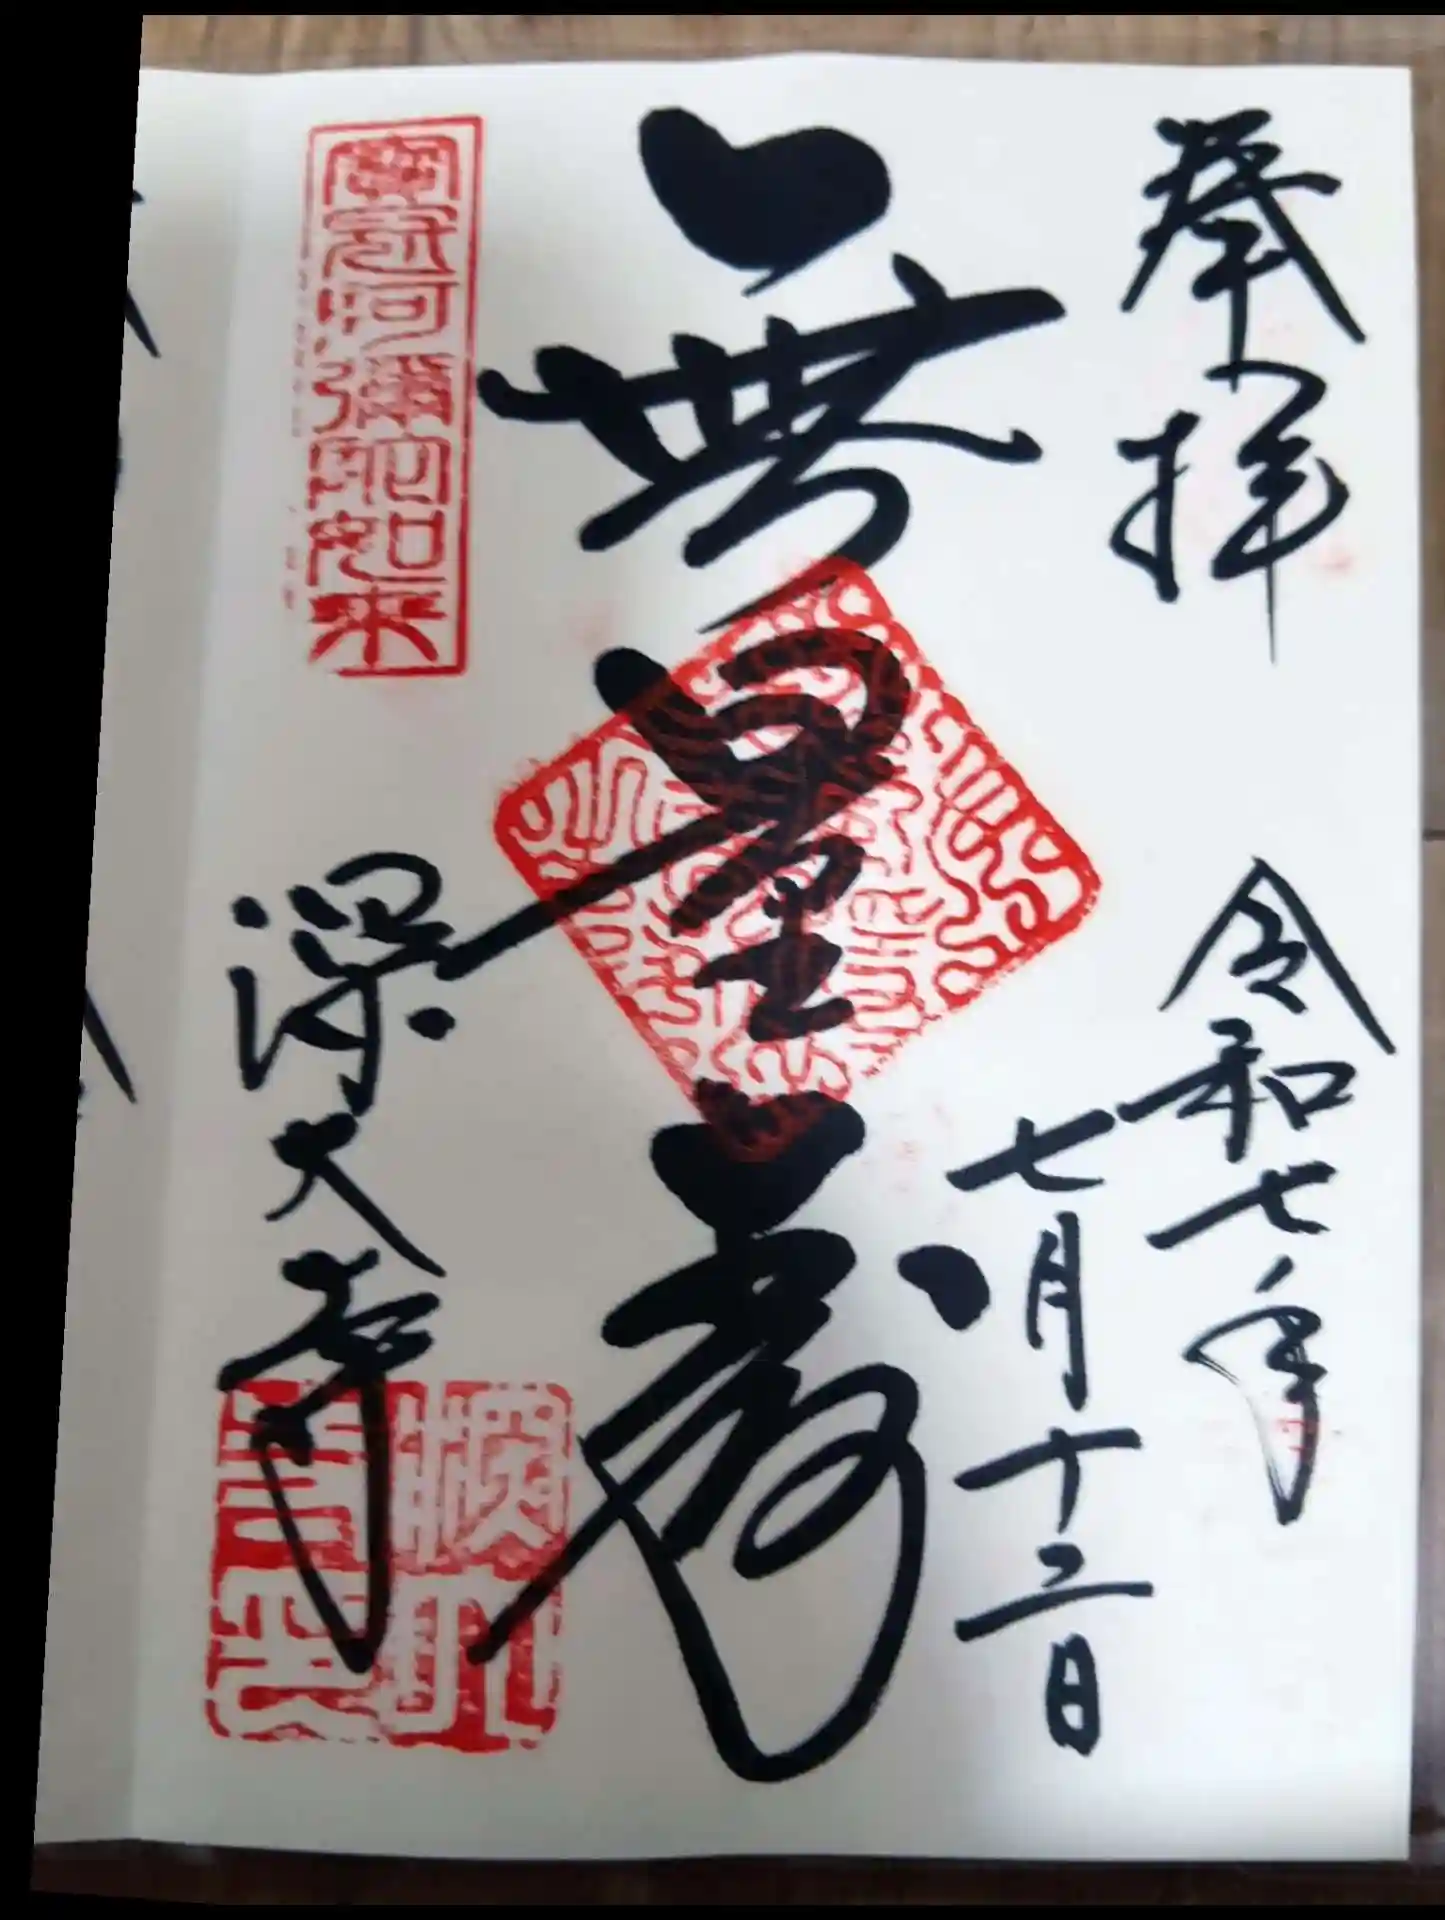 奉拝
令和七年
七月十二日
無量壽
寶冠阿彌陀如来
深大寺